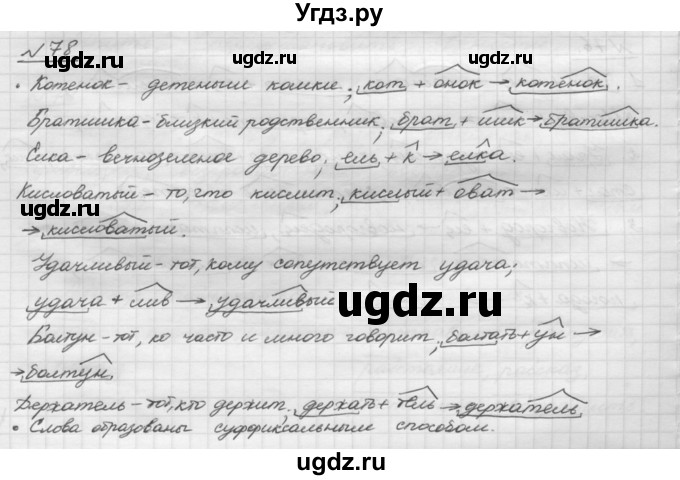 Угдз.ру
№78
• Котенок – детеныш кошки; кот + онок → котёнок.
Братишка – близкий родственник; брат + ишк → братишка.
Ёлка – вечнозеленое дерево; ель + к → ёлка.
Кисловатый – то, что кислит; кислый + оват →
→ кисловатый.
Удачливый – тот, кому сопутствует удача;
удача + лив → удачливый
Болтун – тот, ко часто и много говорит; болтать + ун →
→ болтун.
Держатель – тот, кто держит; держать + тель → держатель.
• Слова образованы суффиксальным способом.
ugdz.ru
ugdz.ru
ugdz.ru
ugdz.ru
ugdz.ru
ugdz.ru
ugdz.ru
ugdz.ru
ugdz.ru
ugdz.ru